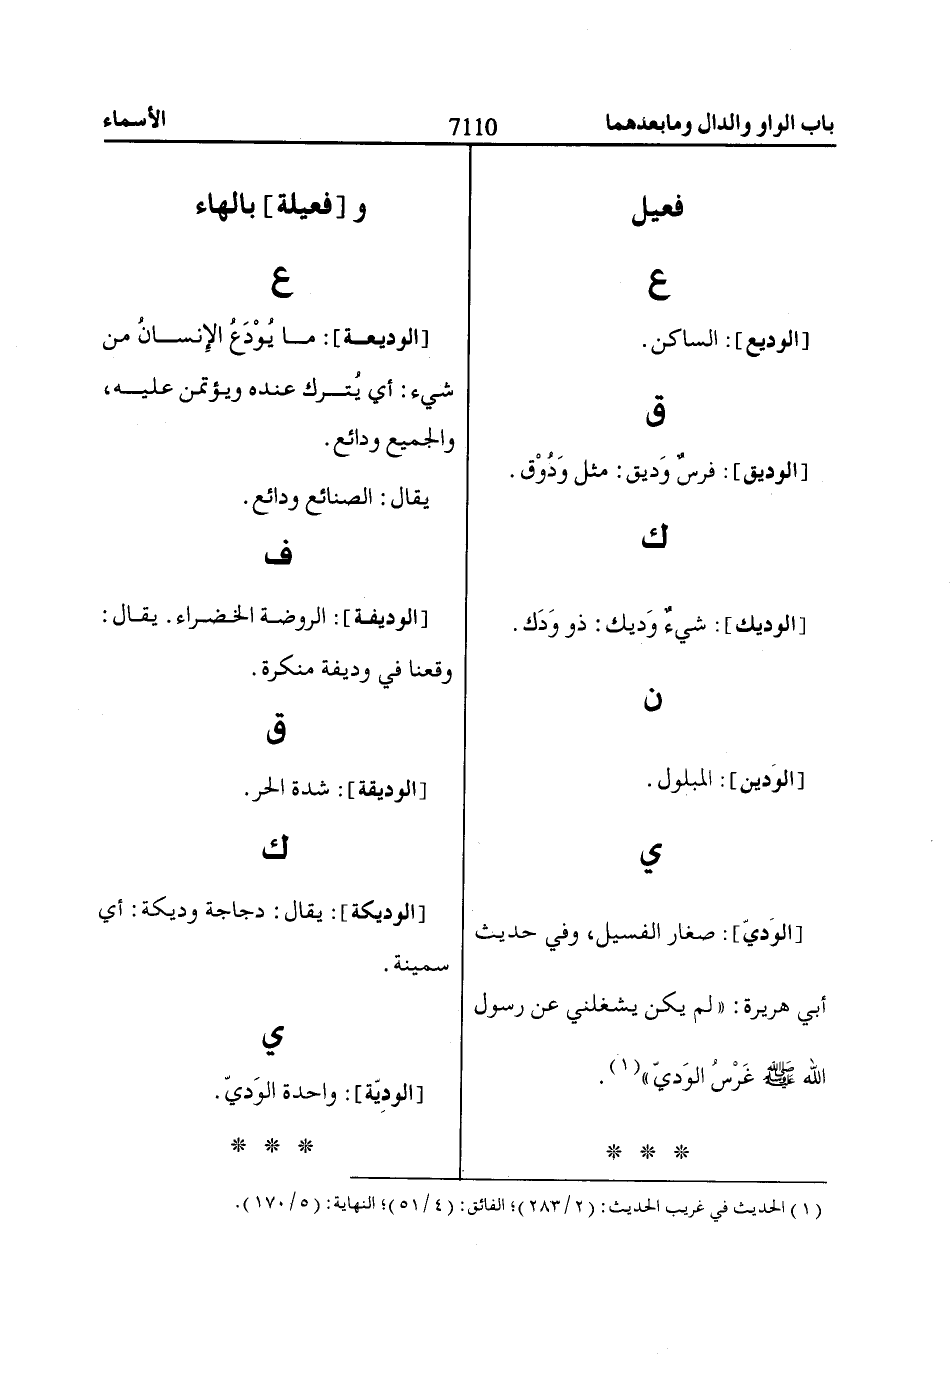 باب الواو والدال ومابعدهما
7110
الأسماء
فعيل
ع
[الوديع]: الساكن.
ق
[الوديق]: فرسٌ وَديق: مثل وَدُوْق.
ك
[الوديك]: شيءٌ وَديك: ذو وَدَك.
ن
[الوَدين]: المبلول.
ي
[الوَديّ]: صغار الفسيل، وفي حديث
أبي هريرة: «لم يكن يشغلني عن رسول
الله ﷺ غَرْسُ الوَديّ»(١).
* * *
و [فعيلة] بالهاء
ع
[الوديعـة]: مـا يُوْدَعُ الإنسـانُ من
شيء: أي يُتـرك عنده ويـؤتمن عليـه،
والجميع ودائع.
يقال: الصنائع ودائع.
ف
[الوديفة]: الروضة الخضراء. يقـال:
وقعنا في وديفة منكرة.
ق
[الوديقة]: شدة الحر.
ك
[الوديكة]: يقال: دجاجة وديكة: أي
سمينة.
ي
[الوديّة]: واحدة الوَديّ.
* * *
(١) الحديث في غريب الحديث: (٢/٢٨٣)؛ الفائق: (٤/٥١)؛ النهاية: (٥/١٧٠).